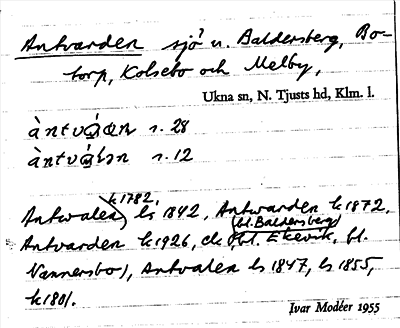 Antvarden sjö u. Baldersberg, Bo-
torp, Kolsebo och Melby,
Ukna sn, N. Tjusts hd, Klm. l.
àntvá̱ɑn r. 28
àntvá̱ən r. 12
k 1782,
Antwalen ls 1842, Antwarden k 1872,
(bl. Baldersberg)
Antvarden k 1926, ek (bl. Ekevik, bl.
Vannersbo), Antvalen ls 1847, ls 1855,
k 1801.
Ivar Modéer 1955